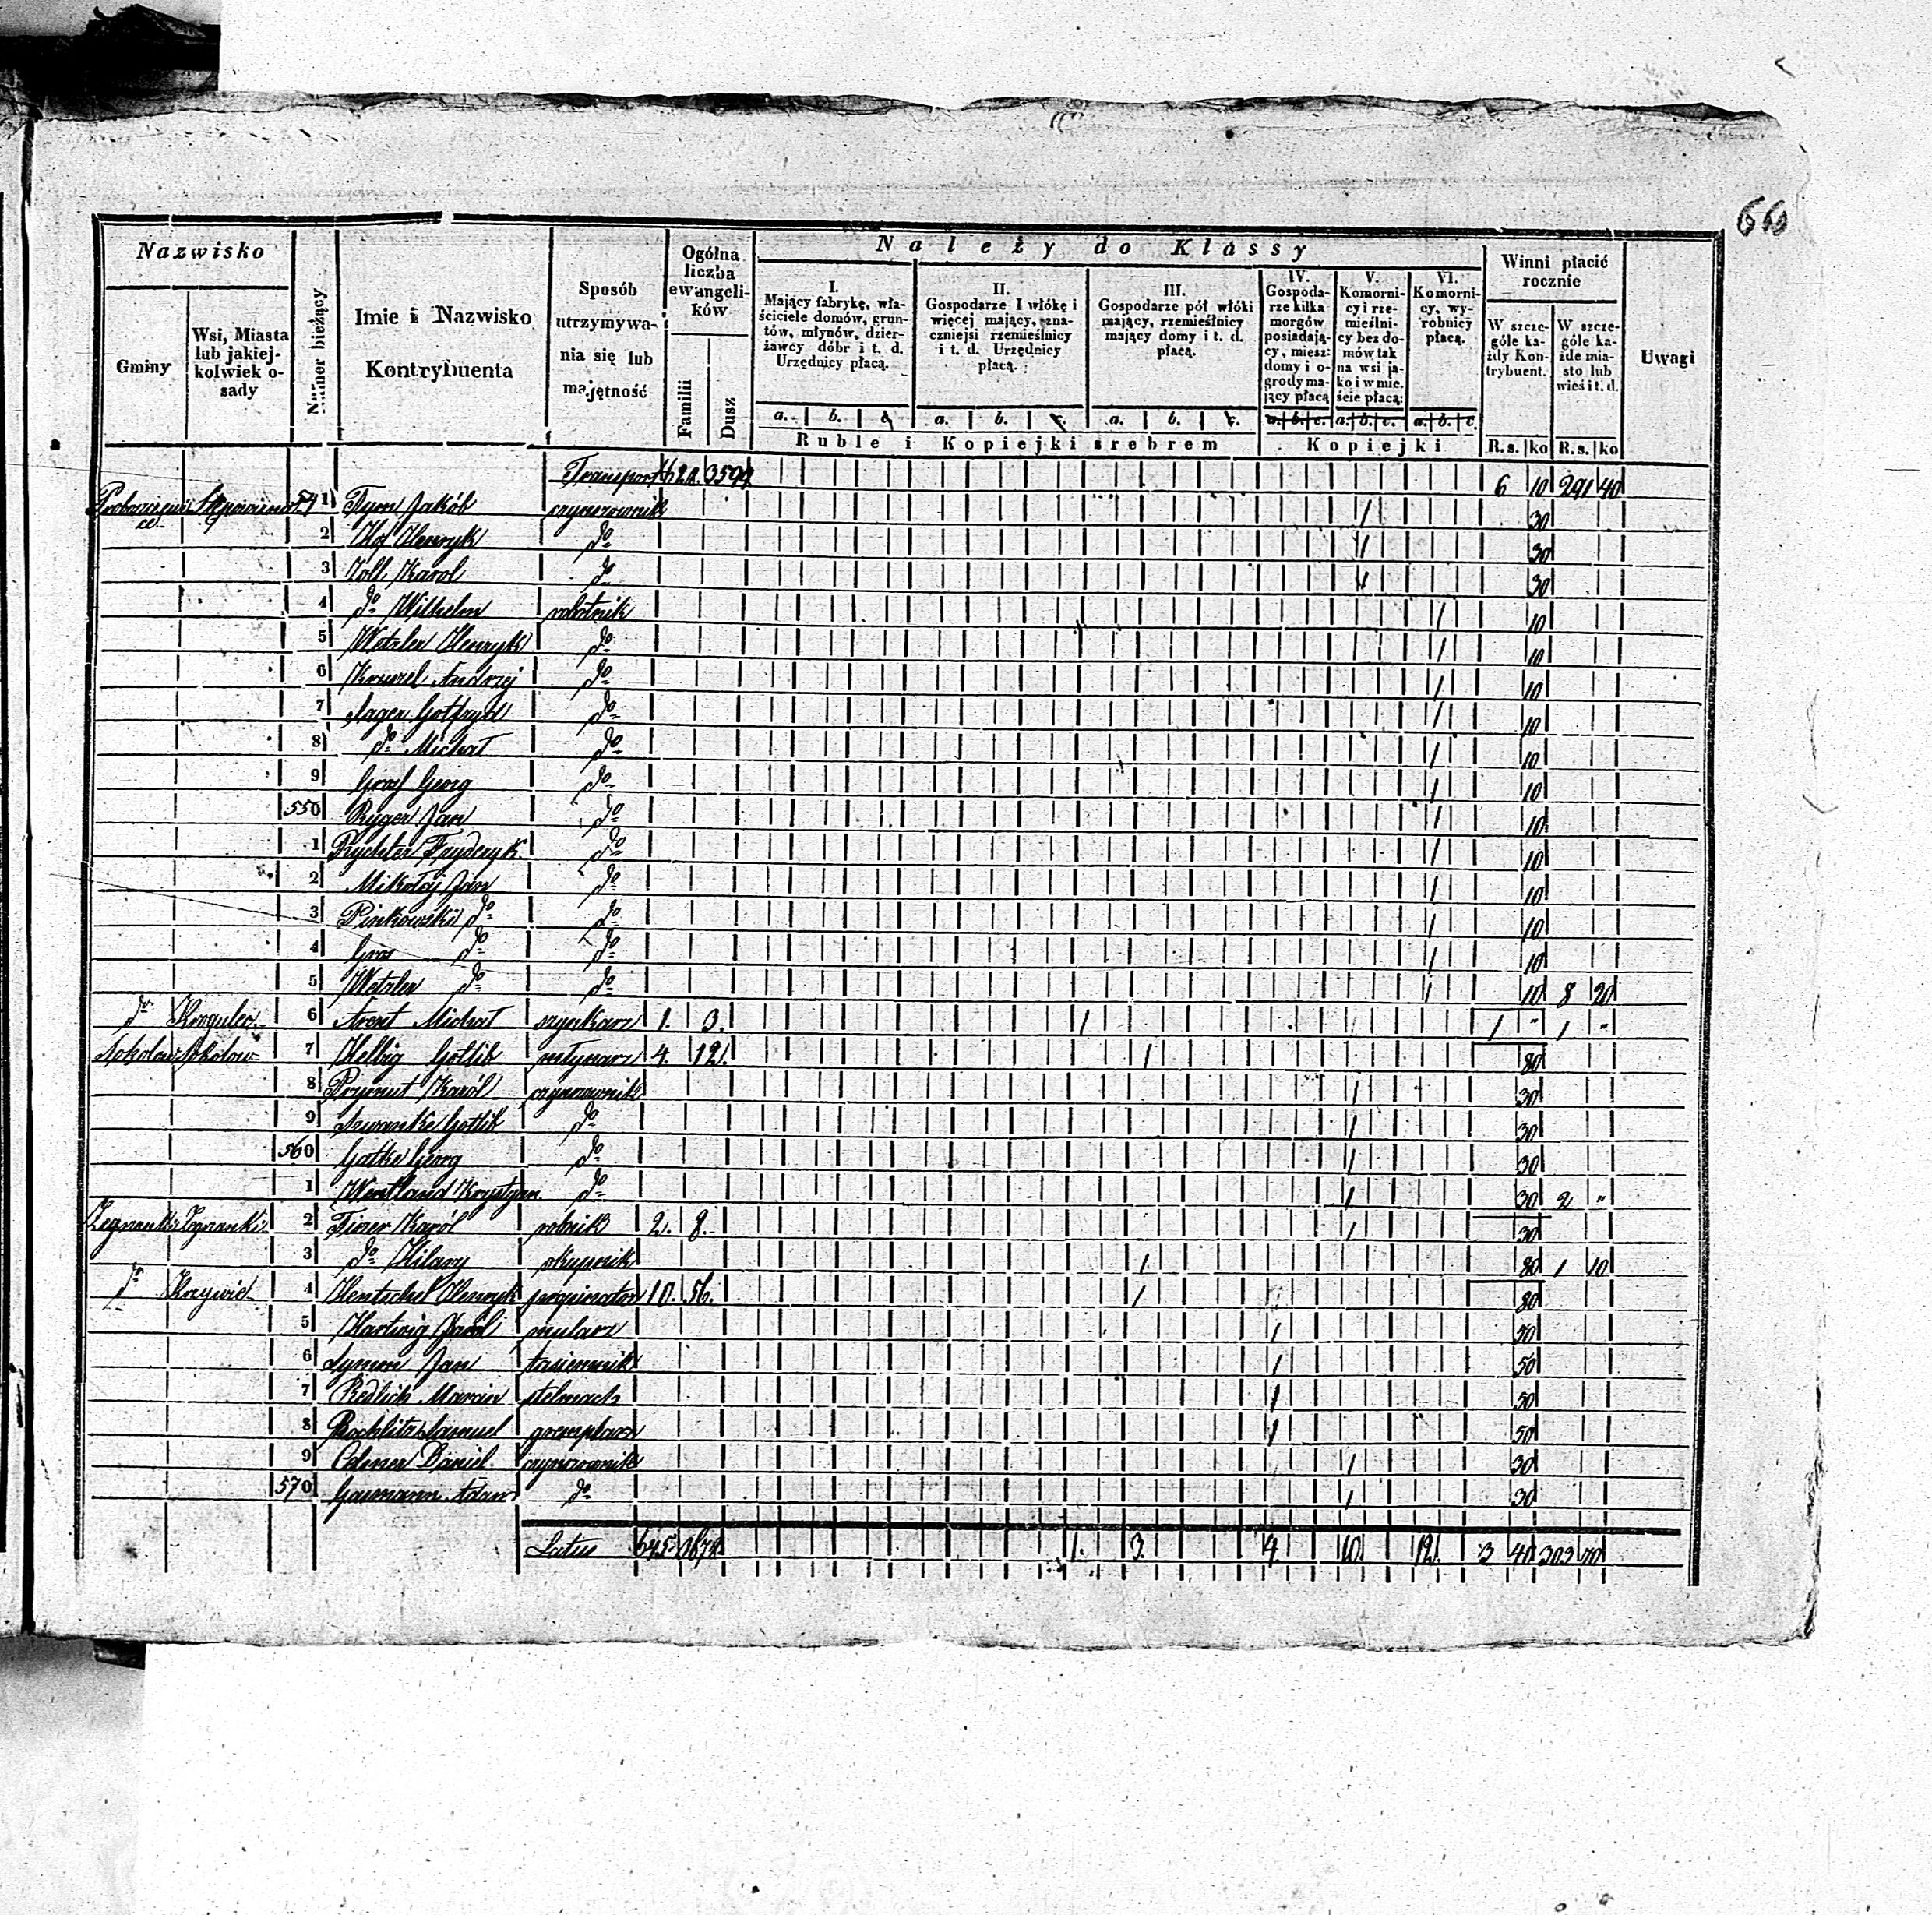 66
Nazwisko
Gminy
Wsi, Miasta lub jakiejkolwiek osady
Numer bieżący
Imie i Nazwisko Kontrybuenta
Sposób utrzymywania się lub majętność
Ogólna liczba ewangelików
Familii
Dusz
Należy do Klassy
I. Mający fabrykę, właściciele domów, gruntów, młynów, dzierżawcy dóbr i t. d. Urzędnicy płacą.
II. Gospodarze I włókę i więcej mający, znaczniejsi rzemieślnicy i t. d. Urzędnicy płacą.
III. Gospodarze pół włóki mający, rzemieślnicy mający domy i t. d. płacą.
IV. Gospodarze kilka morgów posiadający, miesz: domy i ogrody mający płacą
V. Komornicy i rzemieślnicy bez domów tak na wsi jako i w mieście płacą:
VI. Komornicy, wyrobnicy płacą.
a. b. c. a. b. c. a. b. c. a. b. c. a. b. c. a. b. c.
Ruble i Kopiejki srebrem
Kopiejki
Winni płacić rocznie
W szczególe każdy Kontrybuent.
W szczególe każde miasto lub wieś i t. d.
R.s. ko R.s. ko
Uwagi
Transport 3599 6 10 291 40
541 Tym Jakób czynszownik 1 30
2 Henryk do 1 30
3 Zoll Karol do 1 30
4 do Wilhelm robotnik 1 10
5 Wetzler Henryk do 1 10
6 Andrzej do 1 10
7 Gotfryd do 1 10
8 do Michał do 1 10
9 Graf Georg do 1 10
550 Ryger Jan do 1 10
1 Rychter Fryderyk do 1 10
2 Mikołaj Jan do 1 10
3 Pinkowski do do 1 10
4 Gros do do 1 10
5 Wetzler do do 1 10 8 20
do Krogulec 6 Arent Michał szynkarz 1. 3. 1 1 " 1 "
Sokołow Sokołow 7 Helbig Gotlib młynarz 4. 12. 1 80
8 Prymut Karól czynszownik 1 30
9 Szwanke Gotlib do 1 30
560 Gatke Georg do 1 30
1 Wentland Krystyan do 1 30 2 "
Zegnanki Zegnanki 2 Karól rolnik 2. 8. 1 30
3 do Hilary okupnik 1 80 1 10
do Krzywie 4 Hentschel Henryk propinator 10. 56. 1 80
5 Hartwig Karól mularz 1 50
6 Symon Jan 1 50
7 Redlich Marcin stelmach 1 50
8 Rochlitz Samuel gremplarz 1 50
9 Daniel czynszownik 1 30
570 Adam do 1 30
Latus 645 1. 3. 4. 10. 12. 3 40 303 70